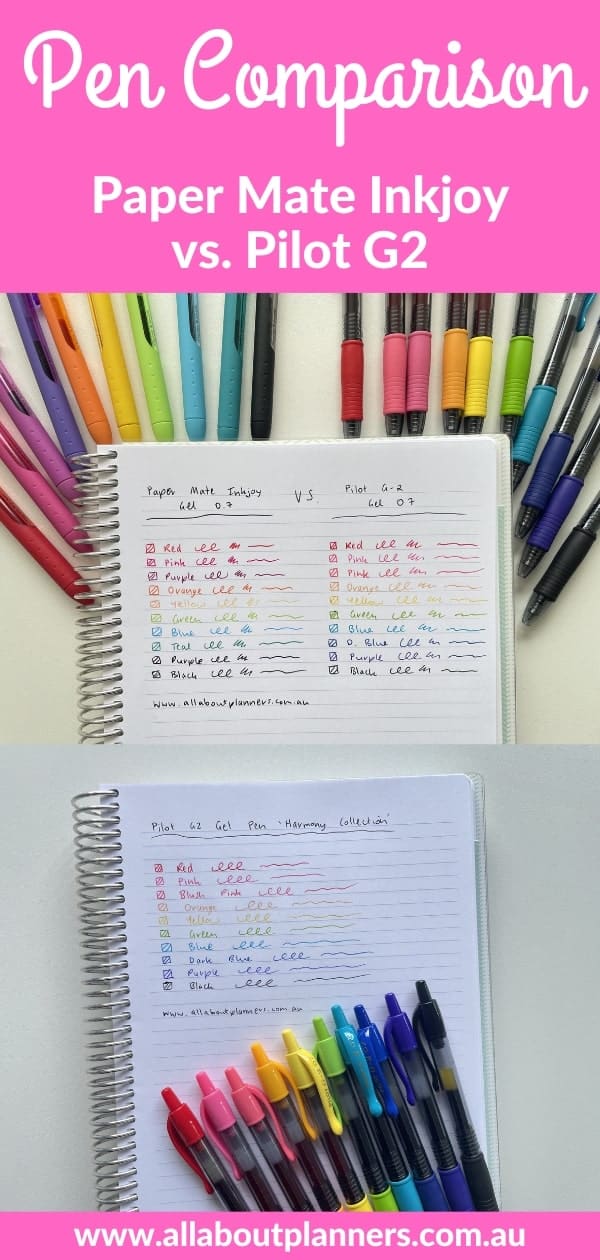 Pen Comparison
Paper Mate Inkjoy
vs. Pilot G2
Paper Mate Inkjoy
Gel 0.7
VS.
Pilot G-2
Gel 07
Red
Pink
Purple
Orange
Yellow
Green
Blue
Teal
Purple
Black
Red
Pink
Pink
Orange
Yellow
Green
Blue
D. Blue
Purple
Black
www.allaboutplanners.com.au
Pilot G2 Gel Pen 'Harmony Collection'
Red
Pink
Blush Pink
Orange
Yellow
Green
Blue
Dark Blue
Purple
Black
www.allaboutplanners.com.au
www.allaboutplanners.com.au